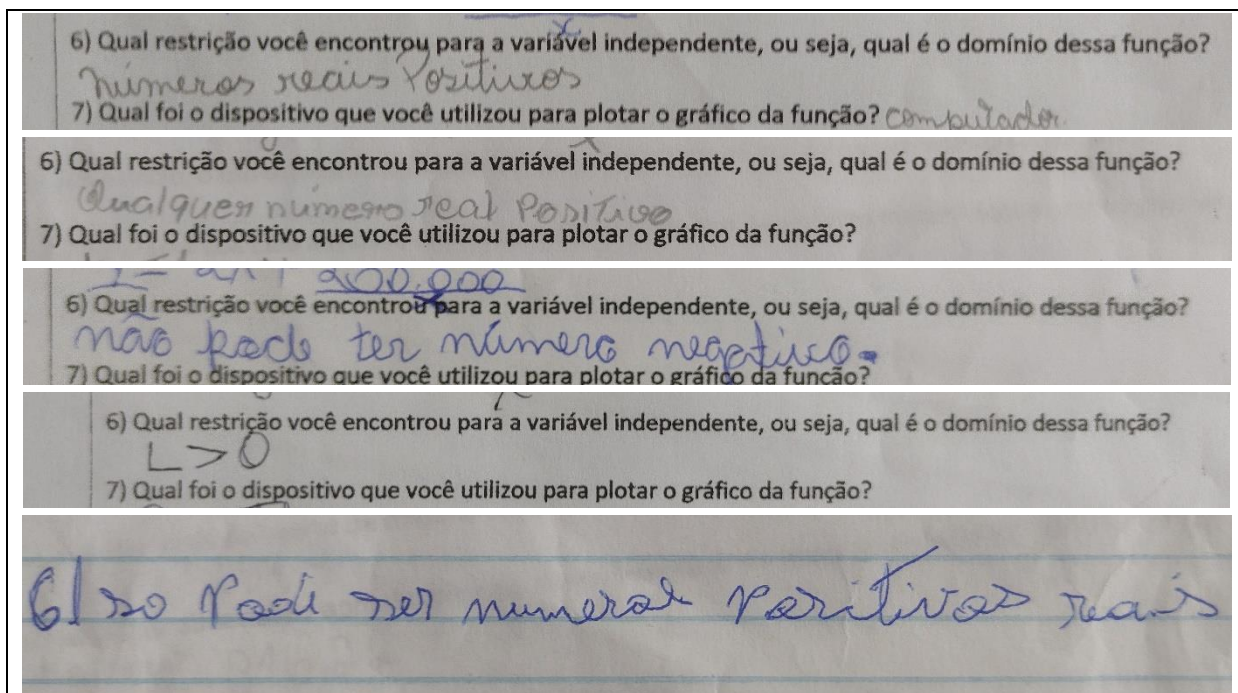 6) Qual restrição você encontrou para a variável independente, ou seja, qual é o domínio dessa função?
números reais Positivos
7) Qual foi o dispositivo que você utilizou para plotar o gráfico da função? computador.
6) Qual restrição você encontrou para a variável independente, ou seja, qual é o domínio dessa função?
Qualquer número real Positivo
7) Qual foi o dispositivo que você utilizou para plotar o gráfico da função?
200.000
6) Qual restrição você encontrou para a variável independente, ou seja, qual é o domínio dessa função?
não pode ter número negativo.
7) Qual foi o dispositivo que você utilizou para plotar o gráfico da função?
6) Qual restrição você encontrou para a variável independente, ou seja, qual é o domínio dessa função?
L > 0
7) Qual foi o dispositivo que você utilizou para plotar o gráfico da função?
6) so Pode ser numeros positivos reais